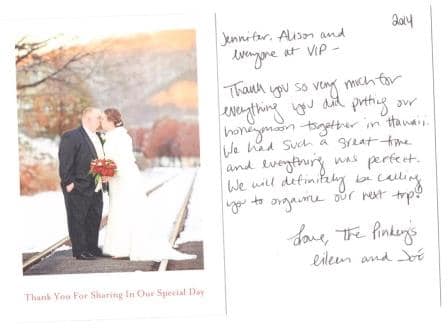 Thank You For Sharing In Our Special Day
2014
Jennifer, Alison and
everyone at VIP -
Thank you so very much for
everything you did putting our
honeymoon together in Hawaii.
We had such a great time
and everything was perfect.
We will definitely be calling
you to organize our next trip!
Love, The Pinkey's
Eileen and Joe